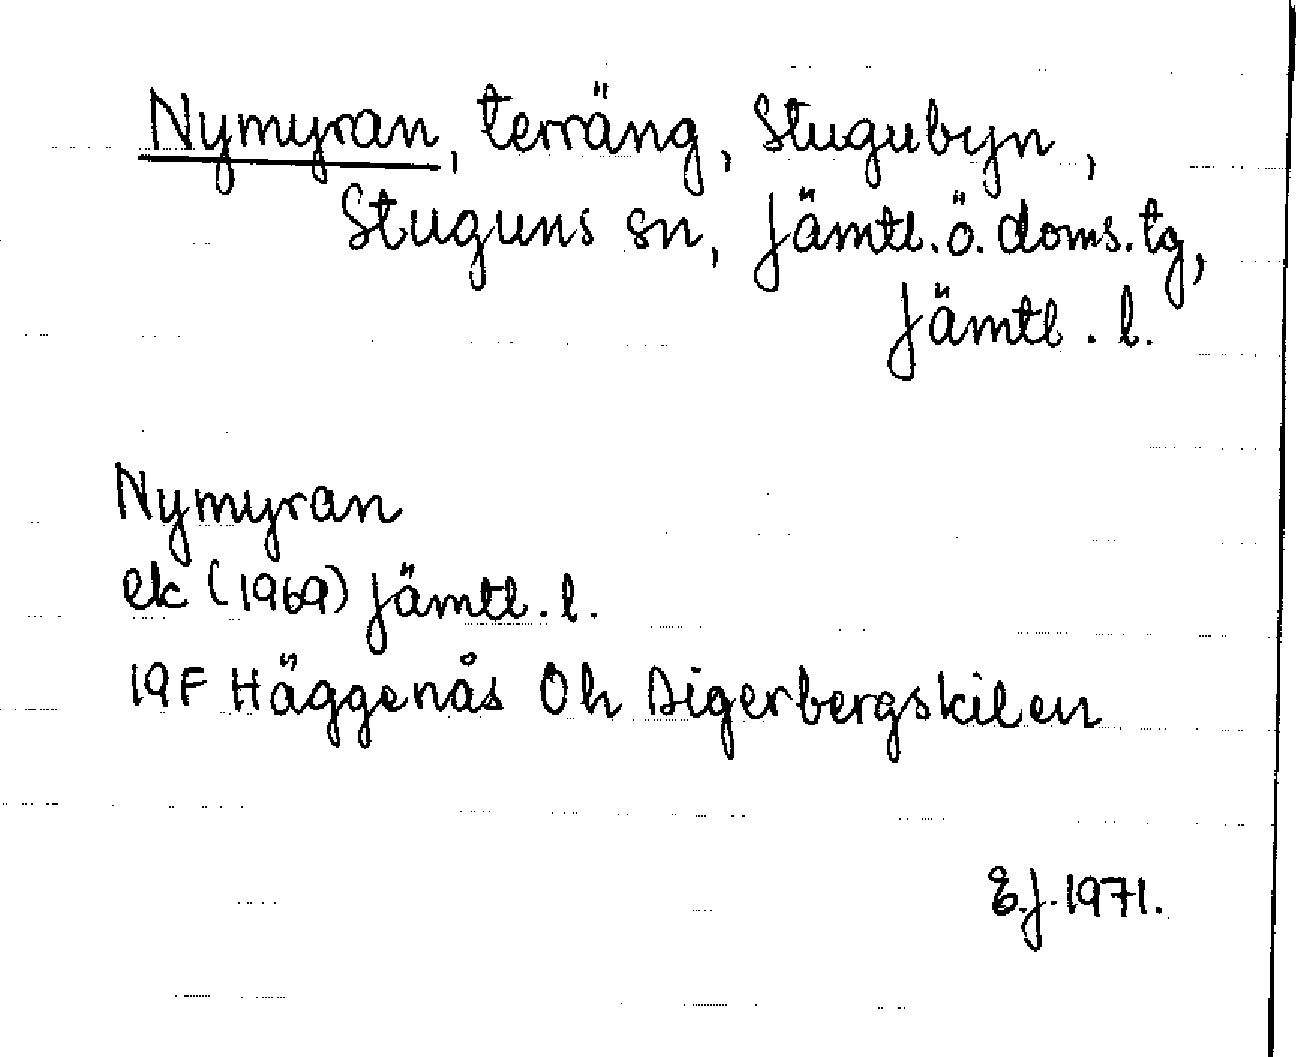 Nymyran, terräng, Stugubyn,
Stuguns sn, Jämtl. ö. doms. tg,
Jämtl. l.
Nymyran
ek (1969) Jämtl. l.
19F Häggenås 0h Digerbergskilen
E.J. 1971.